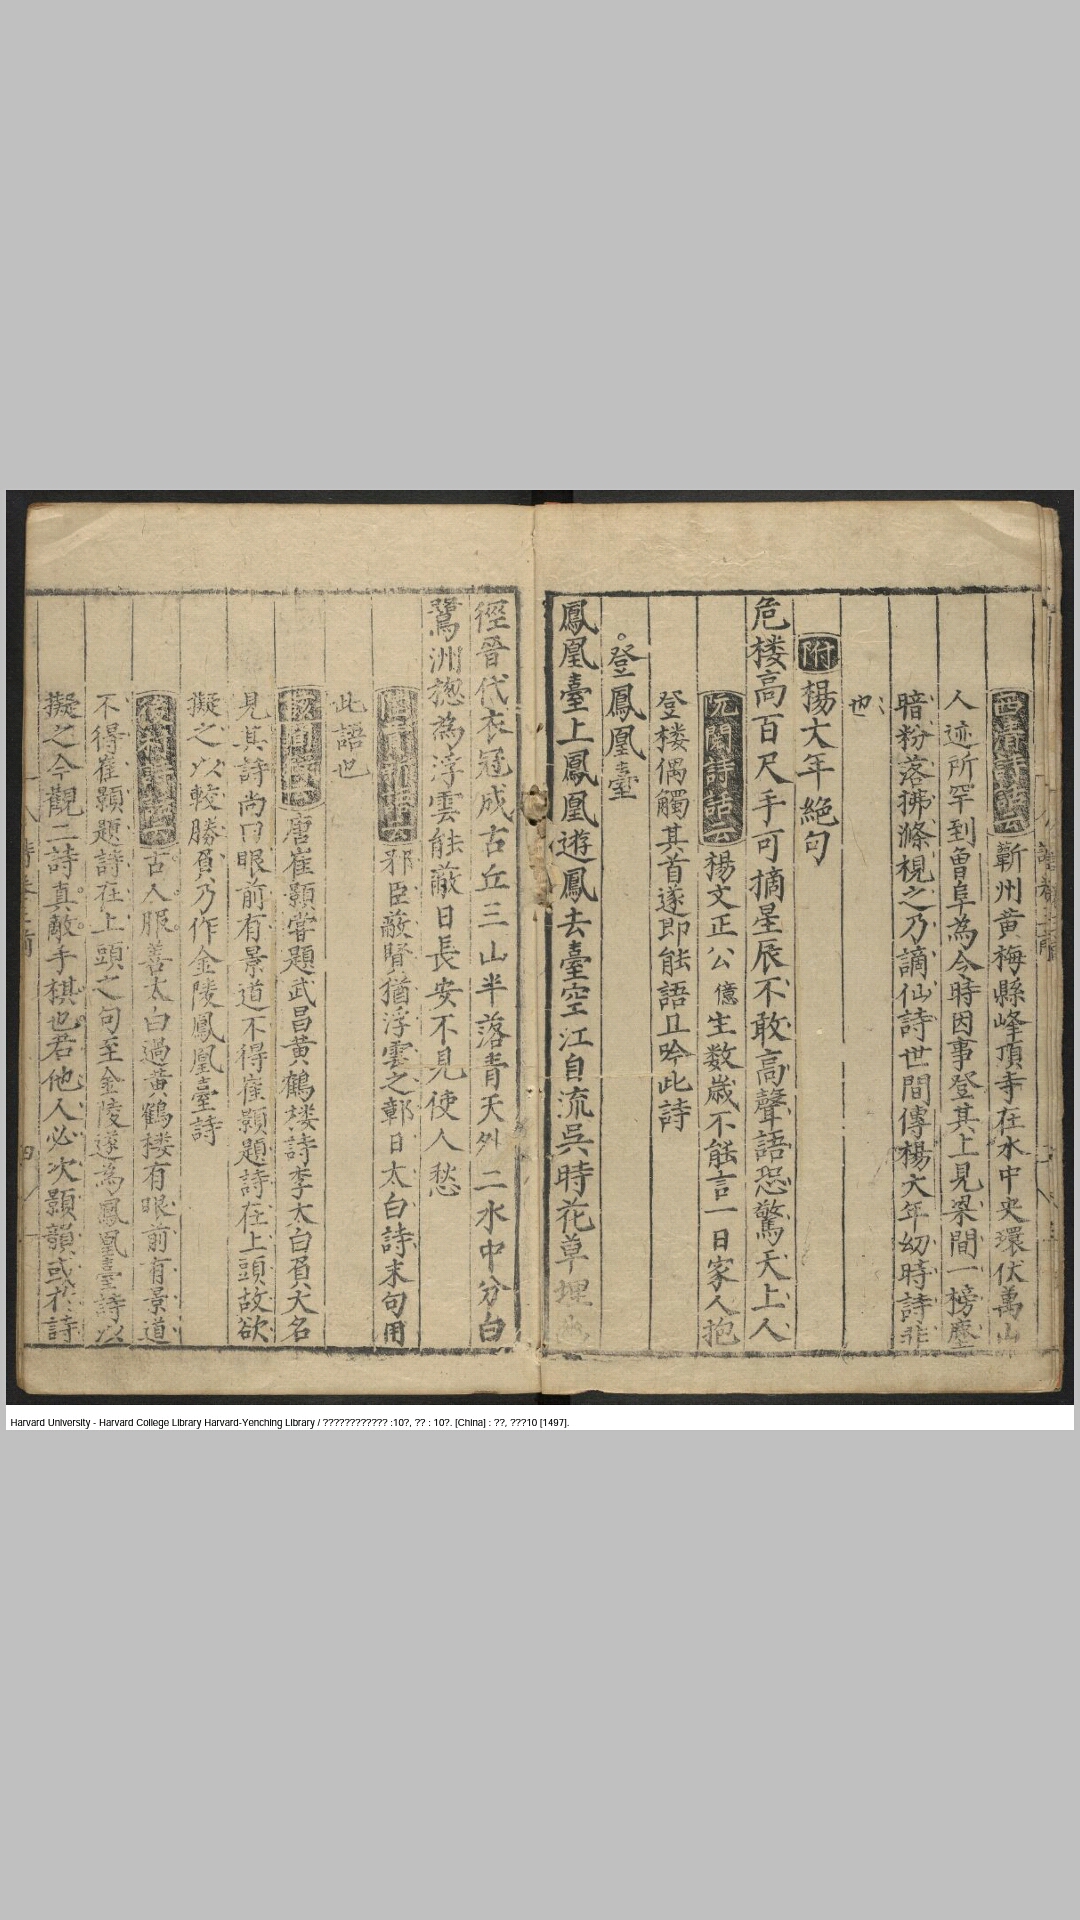 西清詩話云蘄州黄梅縣峰頂寺在水中央環伏萬山
人迹所罕到曾阜為令時因事登其上見梁間一榜塵
暗粉落拂滌視之乃謫仙詩世間傳楊大年幼時詩非
也
附 楊大年絕句
危楼高百尺手可摘星辰不敢高聲語恐驚天上人
古今詩話云楊文正公億生数歲不能言一日家人抱
登楼偶觸其首遂即能語且吟此詩
登鳳凰臺
鳳凰臺上鳳凰遊鳳去臺空江自流吳時花草埋幽
徑晉代衣冠成古丘三山半落青天外二水中分白
鷺洲揔為浮雲能蔽日長安不見使人愁
邪臣蔽賢猶浮雲之鄣日太白詩末句用
此語也
唐崔顥嘗題武昌黄鶴楼詩李太白負大名
見其詩尚曰眼前有景道不得崔顥題詩在上頭故欲
擬之以較勝負乃作金陵鳳凰臺詩
後村詩話云古人服善太白過黄鶴楼有眼前有景道
不得崔顥題詩在上頭之句至金陵遂為鳳凰臺詩以
擬之今觀二詩真敵手棋也若他人必次顥韻或於詩
Harvard University - Harvard College Library Harvard-Yenching Library / ???????????? :10?, ?? : 10?. [China] : ??, ???10 [1497].